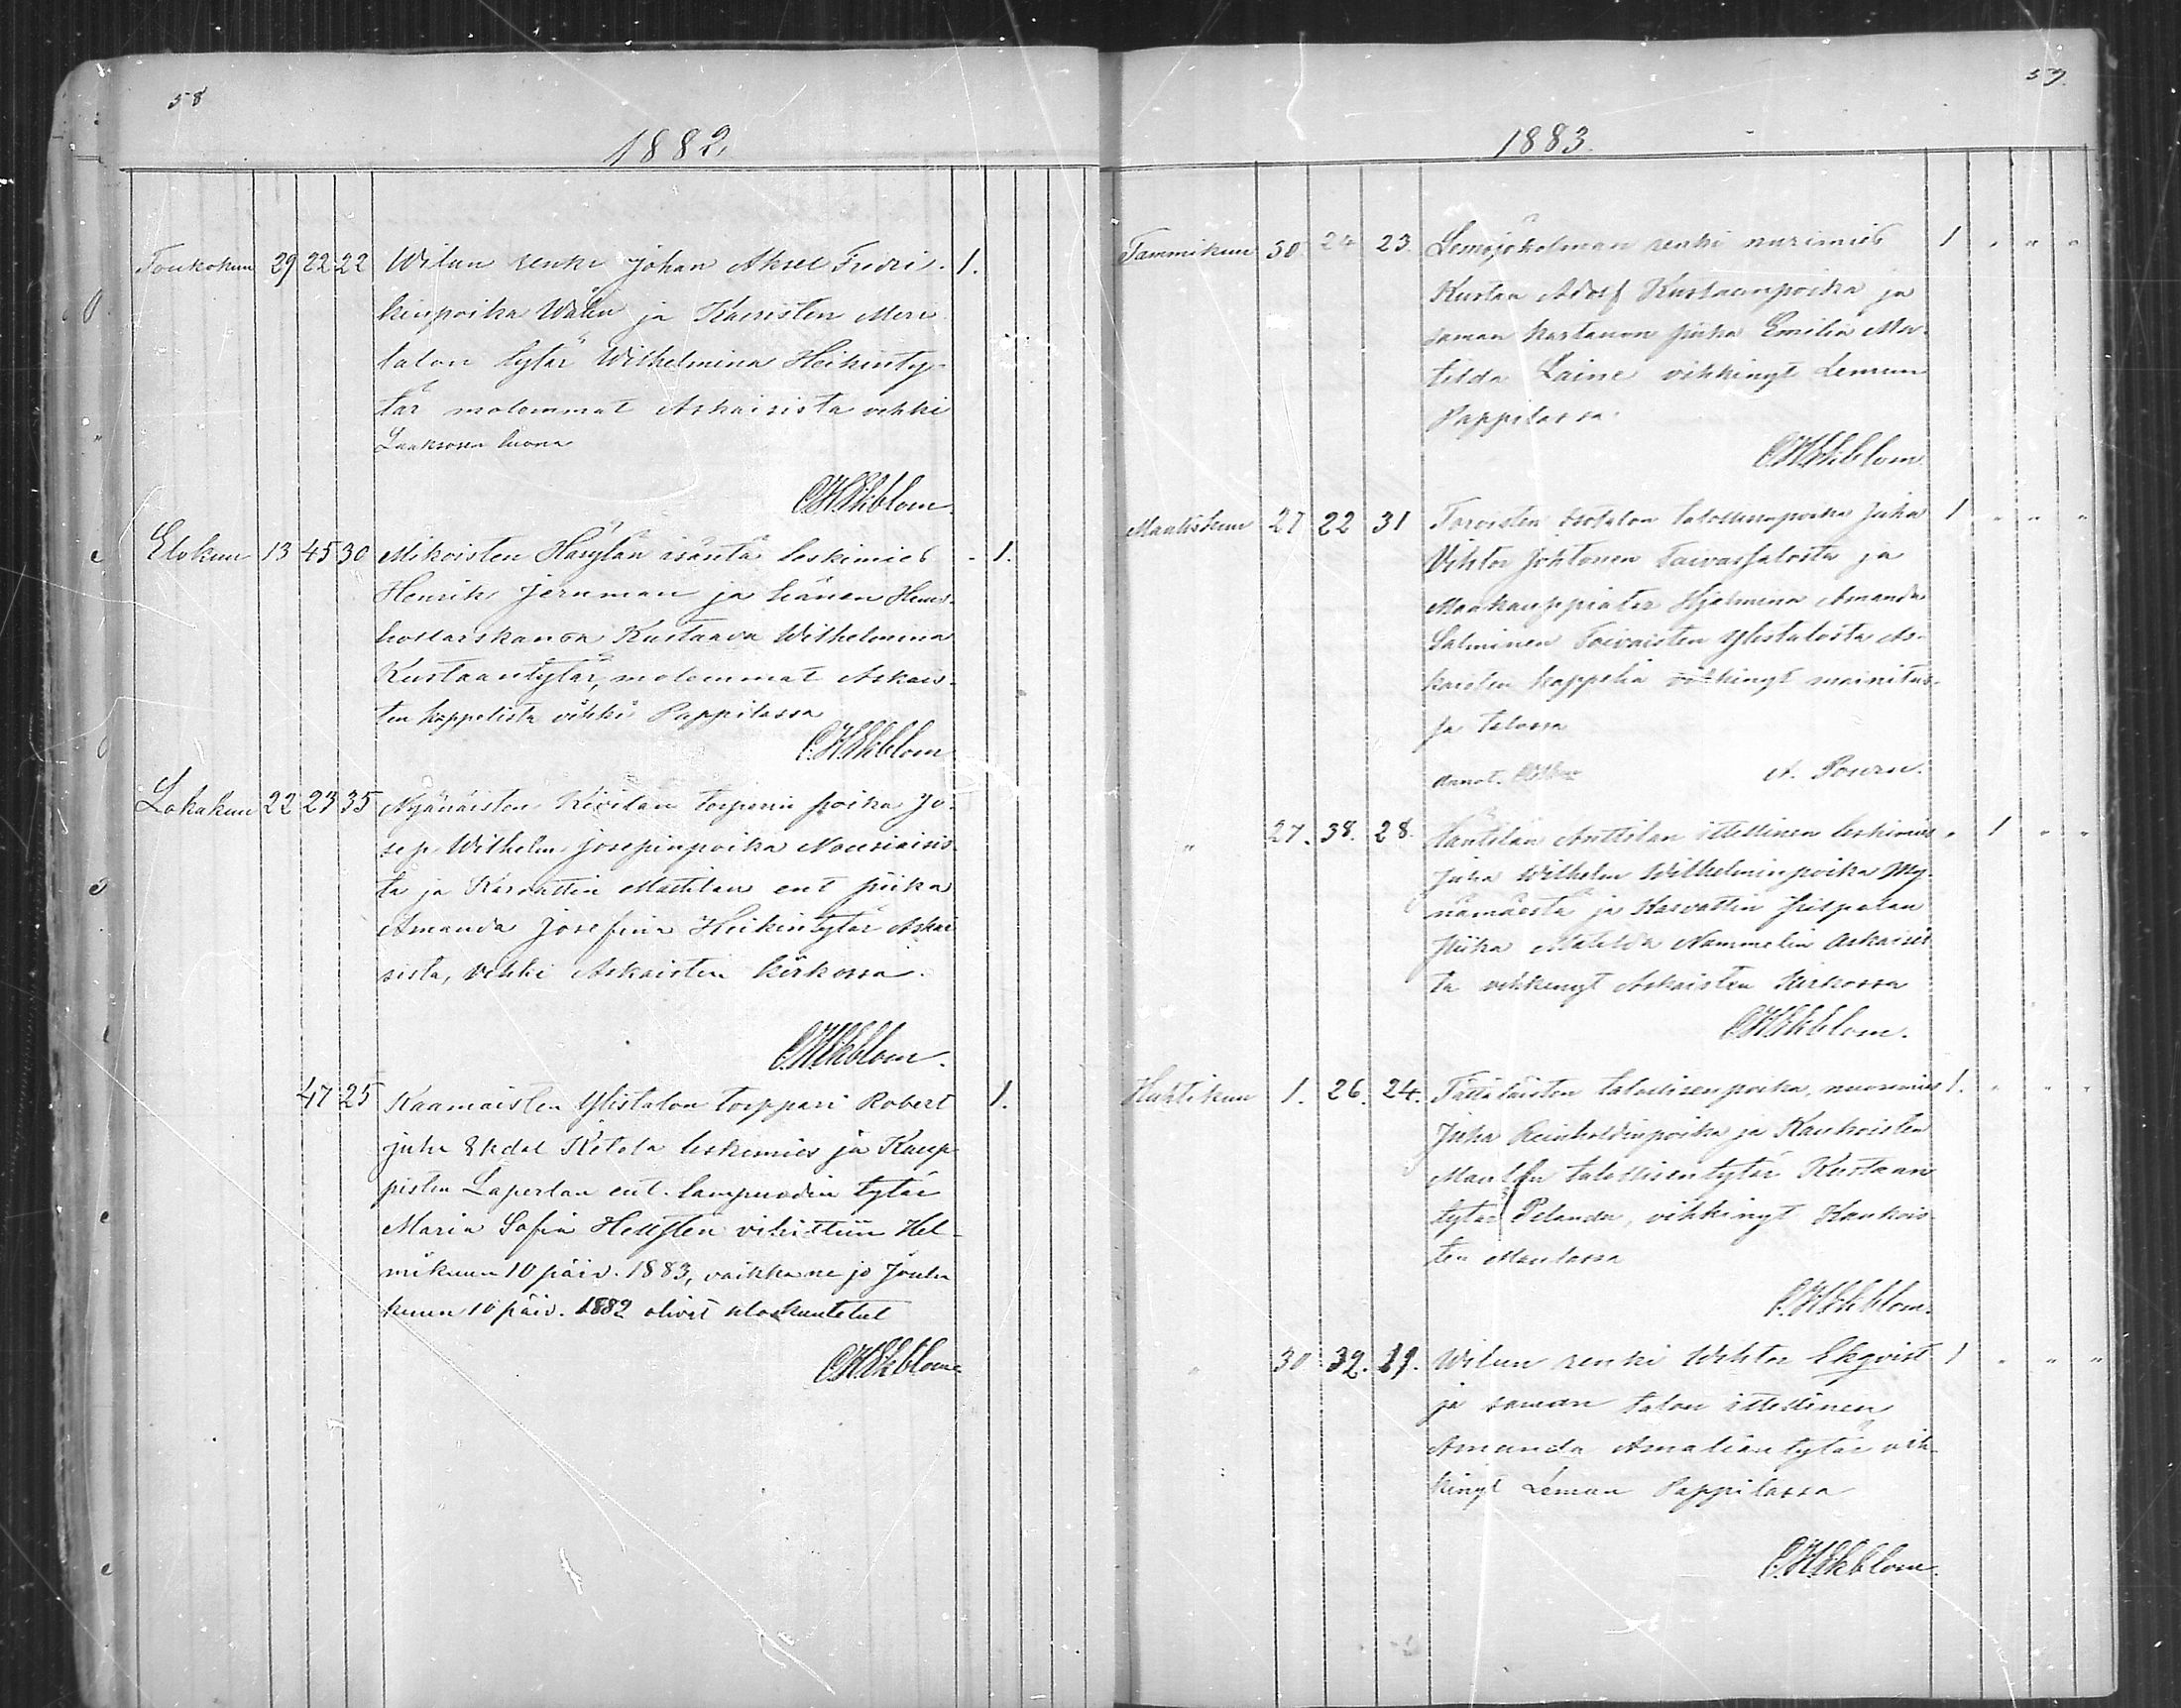 58
1882.
Toukokuu 29 22 22 Wilun renki Johan Aksel Fredri- 1.
kinpoika Wahn ja Kaeristen Meri
talon tytär Wilhelmina Heikinty-
tär molemmat Askaisista vihki
Laaksosen luona
CHEkblom.
Elokuu 13 45 30 Mikoisten Häyylän isäntä leskimies - 1.
Henrik Jernman ja hänen Hus-
hollarskanon Kustaava Wilhelmina
Kustaantytär, molemmat Askais-
ten kappelista vihki Pappilassa
C.HEkblom
Lokakuu 22 23 35 Nyänäisten Kivilän torparin poika Jo-
sep Wilhelm Josepinpoika Nousiaisis-
ta ja Karvattin Mattilan ent piika
Amanda Josefina Heikintytär Askai
sista, vihki Askaisten kirkossa.
CHEkblom.
47 25 Kaamaisten Ylistalon torppari Robert 1.
Juha Ekdal Ketola leskimies ja Kaup-
pisten Laperlan ent. lampuodin tytär
Maria Sofia Hellsten vihittiin Hel-
mikuun 10 päiv. 1883, vaikka ne jo Joulu
kuun 10 päiv. 1882 olivat uloskuulutetut
CHEkblom
59.
1883.
Tammikuu 30. 24 23. Lemsjöholman renki nurimies 1 " " "
Kustaa Adolf Kustaanpoika ja
saman kartanon piika Emilia Ma-
tilda Laine vihkinyt Lemun
Pappilassa.
CHEkblom
Maaliskuu 27 22 31 Isotalon talollisenpoika Juha 1 " " "
Vihtor Johtonen Taivassalosta ja
Maakauppiatar Hjelmina Amanda
Salminen Toivaisten Ylistalosta As-
kaisten kappelia vihkinyt mainitus-
sa talossa
Annot. A. Pourn.
" 27. 38. 28. Anttilan ittellinen leskimies " 1 " "
Juha Wilhelm Wilhelminpoika My-
nämäestä ja Karvattin
Piika Matilda Nammelin Askaisis
ta vihkinyt Askaisten kirkossa
CHEkblom.
Huhtikuu 1. 26. 24. talollisenpoika, nuorimies 1. " " "
Juha Reinholdinpoika ja Kankoisten
Maulan talollisentytär Kustaan
tytär Pelanda, vihkinyt Kankois-
ten Maulassa
C.HEkblom.
" 30 32. 29. Wilun renki Wihtor Ekqvist 1 " " "
ja saman talon ittellinen
Amanda Amaliantytär vih-
kinyt Lemun Pappilassa
C.HEkblom.